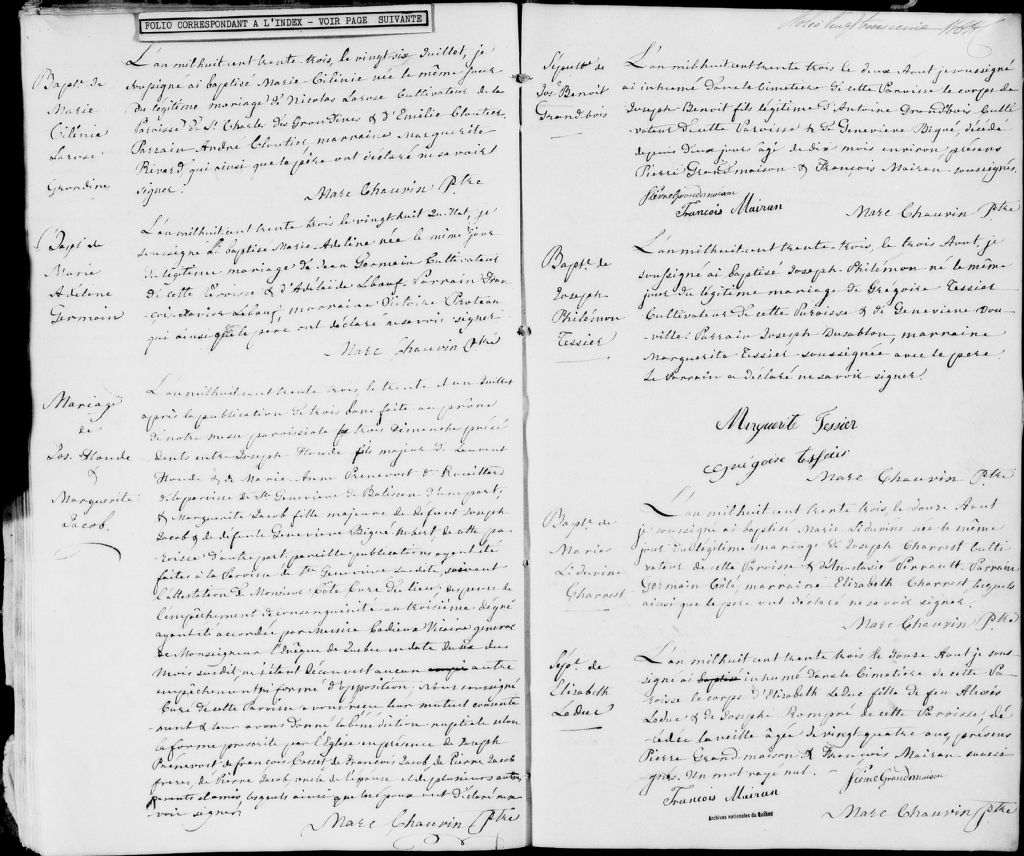 FOLIO CORRESPONDANT A L'INDEX - VOIR PAGE SUIVANTE
Bapt. de
Marie
Cilénie
Larose
Grondine
L'an mil huit cent trente trois, le vingt six Juillet, je
soussigné ai baptisé Marie Cilénie née le même jour
du légitime mariage de Nicolas Larose Cultivateur de la
Paroisse de St Charles des Grondines & d'Emilie Cloutier.
Parrain André Cloutier, marraine Marguerite
Rivard qui ainsi que le père ont déclaré ne savoir
signer.
Marc Chauvin Ptre
Bapt. de
Marie
Adéline
Germain
L'an mil huit cent trente trois le vingt huit Juillet, je
soussigné ai baptisé Marie Adéline née le même jour
du légitime mariage de Jean Germain Cultivateur
de cette Paroisse & d'Adélaïde Lbeuf. Parrain Fran
çois Xavier Lebeuf, marraine Victoire Proteau
qui ainsi que le père ont déclaré ne savoir signer
Marc Chauvin Ptre
Mariage
de
Jos. Houde
&
Marguerite
Jacob.
L'an mil huit cent trente trois le trente et un Juillet
après la publication de trois bans faite au prône
de notre messe paroissiale trois dimanche précé
dents entre Joseph Houde fils majeur de Laurent
Houde & de Marie Anne Prenevost de Rouillard
de la paroisse de Ste Geneviève de Batiscan d'une part;
& Marguerite Jacob fille majeure de défunt Joseph
Jacob & de défunte Geneviève Bigué Nobert de cette pa
roisse d'autre part, pareille publications ayant été
faites à la Paroisse de Ste Geneviève susdite, suivant
l'attestation de Monsieur Côté Curé du lieu; dispense de
l'empêchement de consanguinité au troisième dégré
ayant été accordée par Messire Cadieux Vicaire général
de Monseigneur l'Evêque de Québec en date du dix des
mois susdit, ne s'étant découvert aucun autre
empêchement ni formé d'opposition; Nous soussigné
Curé de cette Paroisse avons reçu leur mutuel consente
ment & leur avons donné la bénédiction nuptiale selon
la forme prescrite par l'Eglise en présence de Joseph
Prénevost de françois Cosset de François Jacob, de Pierre Jacob
freres, de Pierre Jacob oncle de l'épouse et de plusieurs autres
parents et amis, lesquels ainsi que les époux ont déclaré ne sa
voir signer
Marc Chauvin Ptre
Folio vingt troisieme
Sépulre de
Jos. Benoit
Grandbois
L'an mil huit cent trente trois le deux Aout je soussigné
ai inhumé dans le Cimetière de cette Paroisse le corps de
Joseph Benoit fils légitime d'Antoine Grandbois Culti
vateur de cette Paroisse & de Geneviève Bigué, décédé
depuis deux jours âgé de dix mois environ présens
Pierre Grandmaison & François Mairan soussignés.
Pierre Grandmaison
Francois Mairan
Marc Chauvin Ptre
Bapt. de
Joseph
Philémon
Tessier
L'an mil huit cent trente trois, le trois Aout, je
soussigné ai baptisé Joseph Philémon né le même
jour du légitime mariage de Grégoire Tessier
Cultivateur de cette Paroisse & de Geneviève Dou
ville: Parrain Joseph Dusablon, marraine
Marguerite Tessier soussignée avec le père.
Le Parrain a déclaré ne savoir signer.
Merguerite Tessier
Grégoire tessier
Marc Chauvin Ptre
Bapt. de
Marie
Liduvine
Charrest
L'an mil huit cent trente trois, le douze Aout
je soussigné ai baptisé Marie Liduvine née le même
jour du légitime mariage de Joseph Charrest Culti
vateur de cette Paroisse & d'Anastasie Perrault. Parrain
Germain Côté, marraine Elizabeth Charrest lesquels
ainsi que le père ont déclaré ne savoir signer.
Marc Chauvin Ptre
Sépt. de
Elizabeth
Leduc
L'an mil huit cent trente trois le douze Aout je sous
signé ai baptisé inhumé dans le Cimetière de cette Pa
roisse le corps d'Elizabeth Leduc fille de feu Alexis
Leduc & de Josephe Rompré de cette Paroisse, dé
cédée la veille âgée de vingt quatre ans, présens
Pierre Grandmaison & François Mairan soussi
gnés. Un mot rayé nul. -
Pierre Grandmaison
Francois Mairan
Marc Chauvin Ptre
Archives nationales du Québec